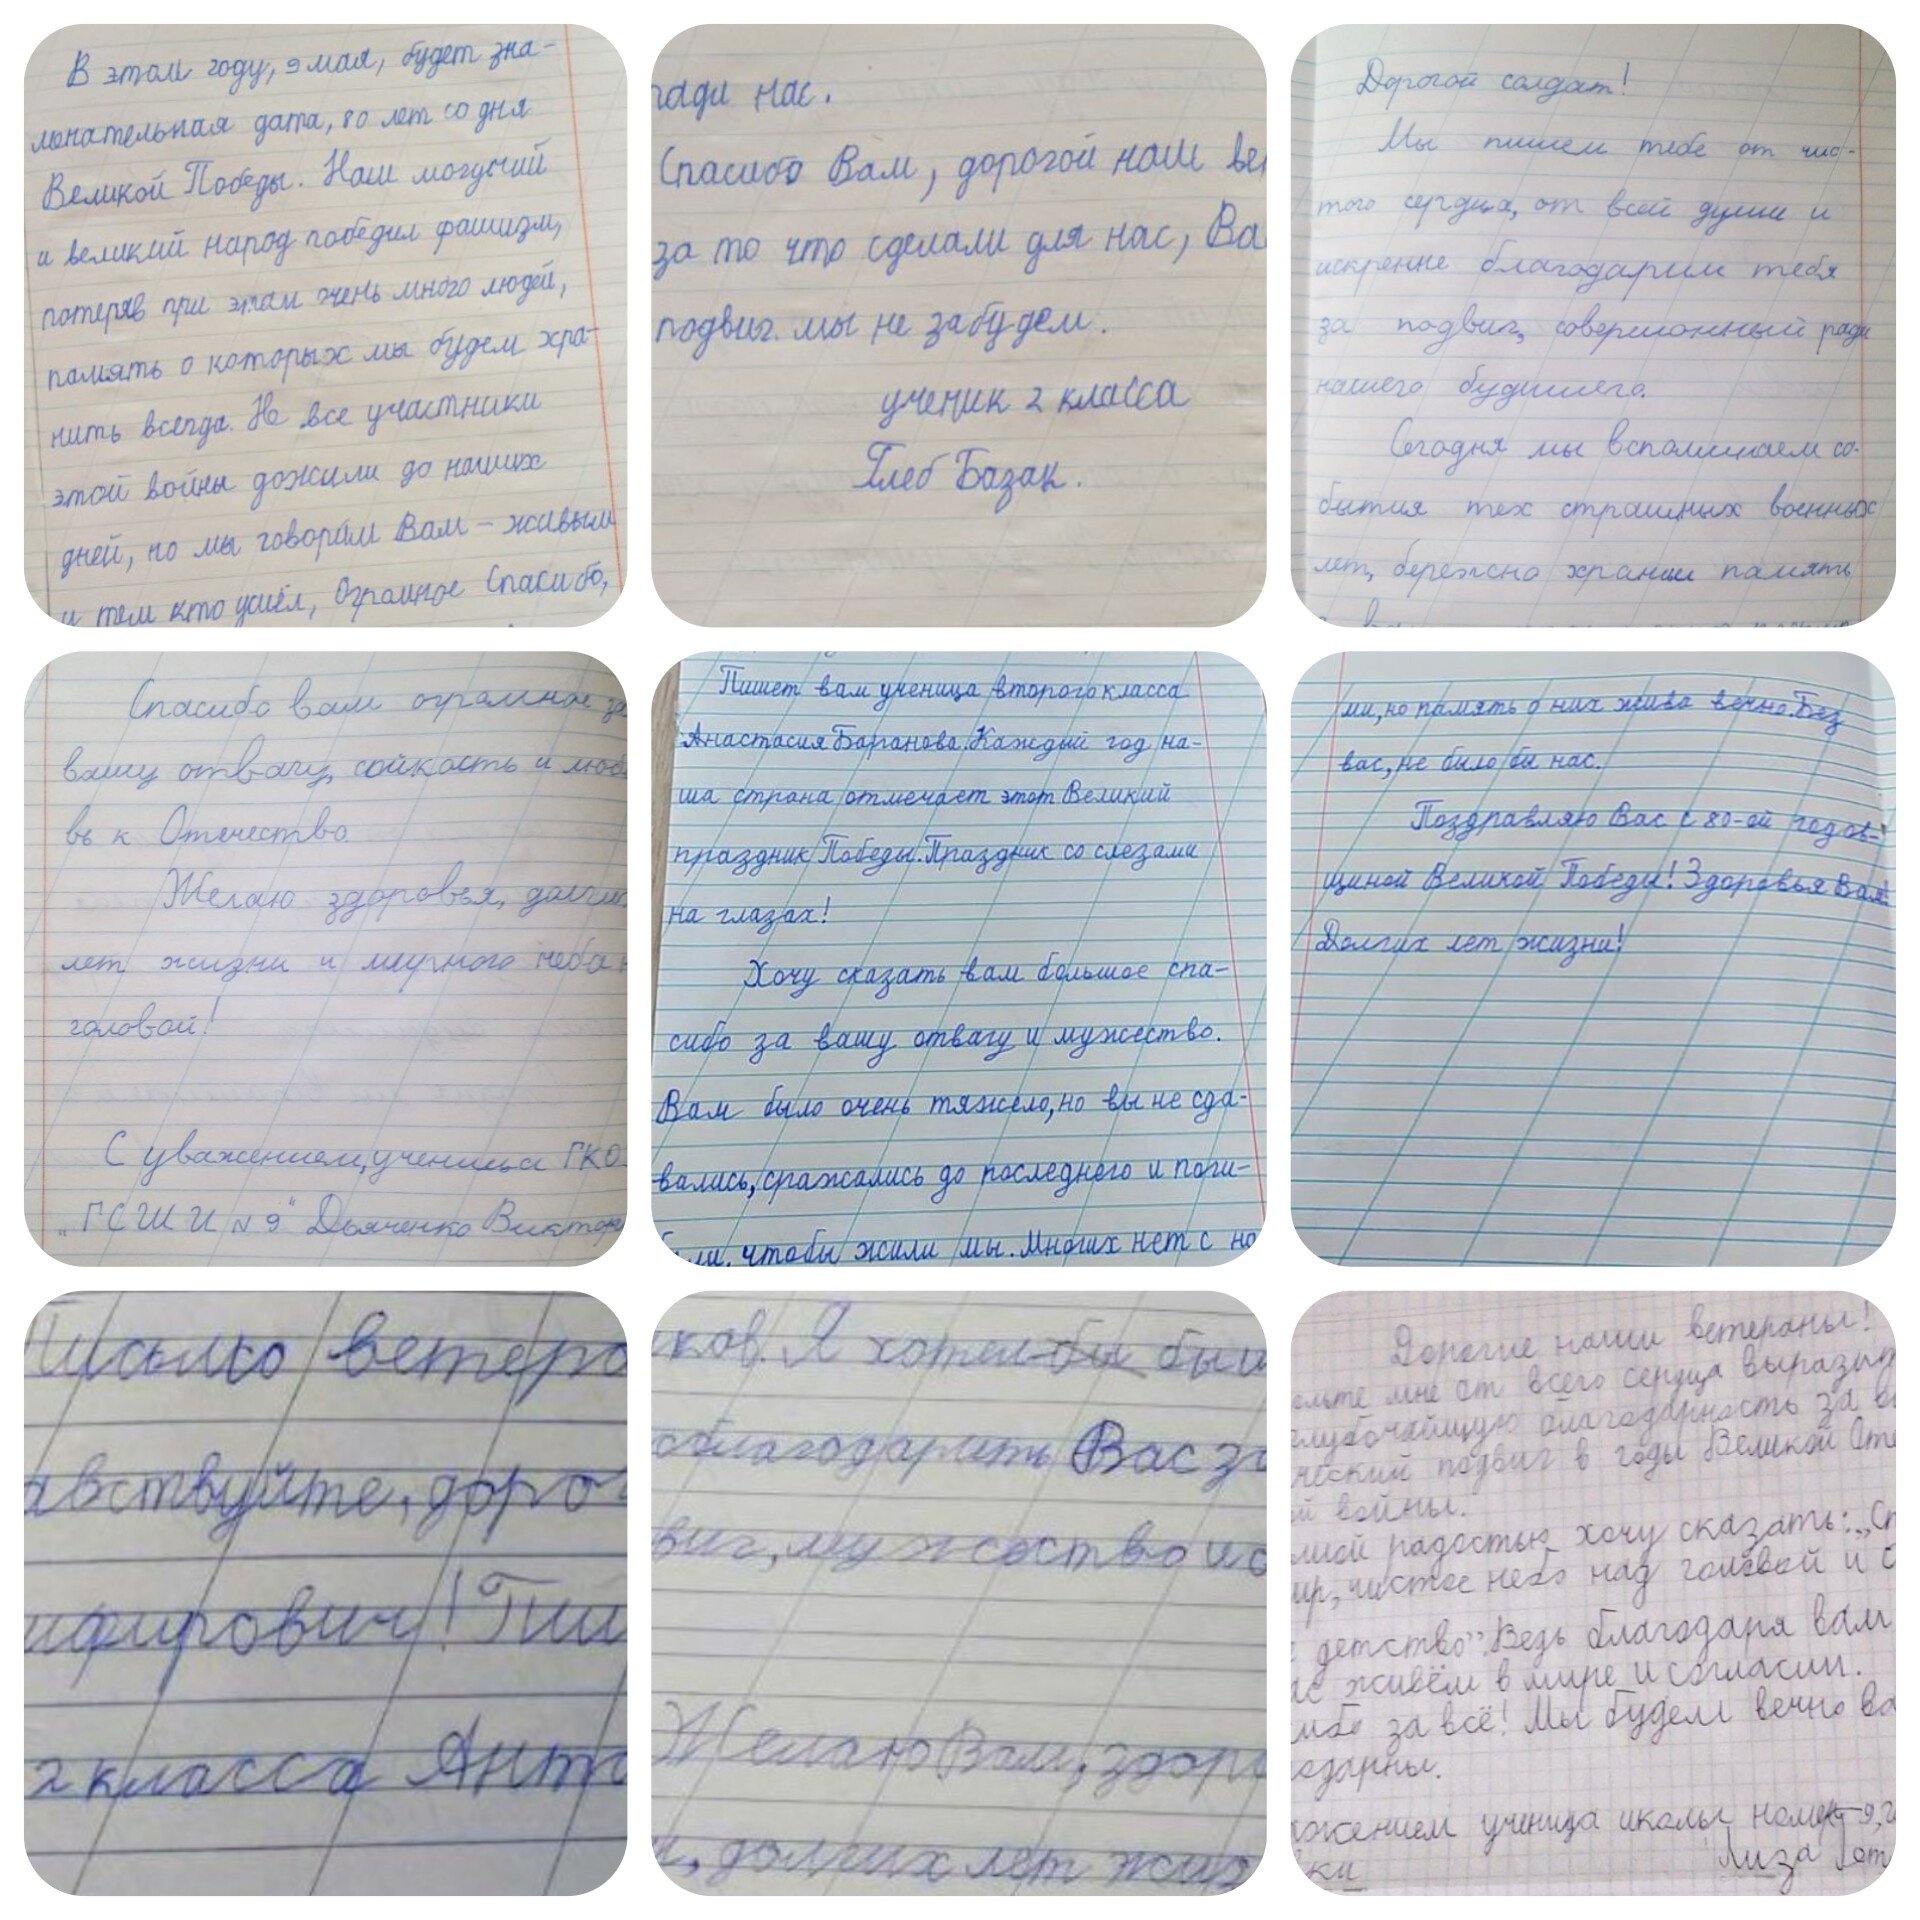 В этом году, 9 мая, будет зна-
менательная дата, 80 лет со дня
Великой Победы. Наш могучий
и великий народ победил фашизм,
потеряв при этом очень много людей,
память о которых мы будем хра-
нить всегда. Не все участники
этой войны дожили до наших
дней, но мы говорим Вам - живым
и тем кто ушёл, Огромное Спасибо,
ради нас.
Спасибо Вам, дорогой наш ве
за то что сделали для нас, Ва
подвиг мы не забудем.
ученик 2 класса
Глеб Базак.
Дорогой солдат!
Мы пишем тебе от чис-
того сердца, от всей души и
искренне благодарим тебя
за подвиг, совершонный ради
нашего будущего.
Сегодня мы вспоминаем со-
бытия тех страшных военных
лет, бережно храним память
Спасибо вам огромное за
вашу отвагу, сойкость и люб
вь к Отечество.
Желаю здоровья, долгих
лет жизни и мирного неба н
головой!
С уважением, ученица ГКО
"ГСШИ N 9" Дьяченко Виктор
Пишет вам ученица второго класса
Анастасия Баранова. Каждый год на-
ша страна отмечает этот Великий
праздник Победы. Праздник со слезами
на глазах!
Хочу сказать вам большое спа-
сибо за вашу отвагу и мужество.
Вам было очень тяжело, но вы не сда-
вались, сражались до последнего и поги-
бали, чтобы жили мы. Многих нет с на
ми, но память о них жива вечно. Без
вас, не было бы нас.
Поздравляю Вас с 80-ой годов-
щиной Великой Победы! Здоровья Вам!
Долгих лет жизни!
Письмо ветера
авствуйте, дорог
ифирович! Пиш
2 класса Анто
ков. Я хотел бы бы
облагодарить Вас за
виг, мужество и с
Желаю Вам, здоро
и, долгих лет жиз
Дорогие наши ветераны!
ольте мне от всего сердца выразит
глубочайшую благодарность за в
ческий подвиг в годы Великой Оте
ой войны.
мной радостью хочу сказать: „Сп
ир, чистое небо над головой и с
е детство". Ведь благодаря вам
ас живём в мире и согласии.
ибо за всё! Мы будем вечно ва
одарны.
ажением ученица школы номер 9, г
ки
Лиза Пот